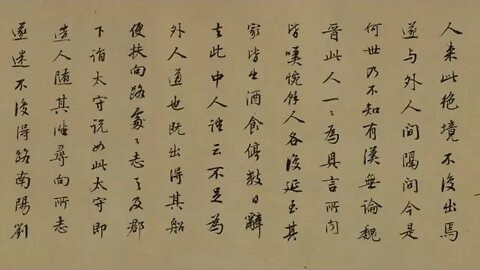 人来此絶境不復出焉
遂与外人間隔問今是
何世乃不知有漢無論魏
晉此人一一為具言所聞
皆嘆惋餘人各復延至其
家皆出酒食停数日辭
去此中人語云不足為
外人道也既出得其船
便扶向路處〻志之及郡
下詣太守説如此太守即
遣人随其往尋向所志
遂迷不復得路南陽劉